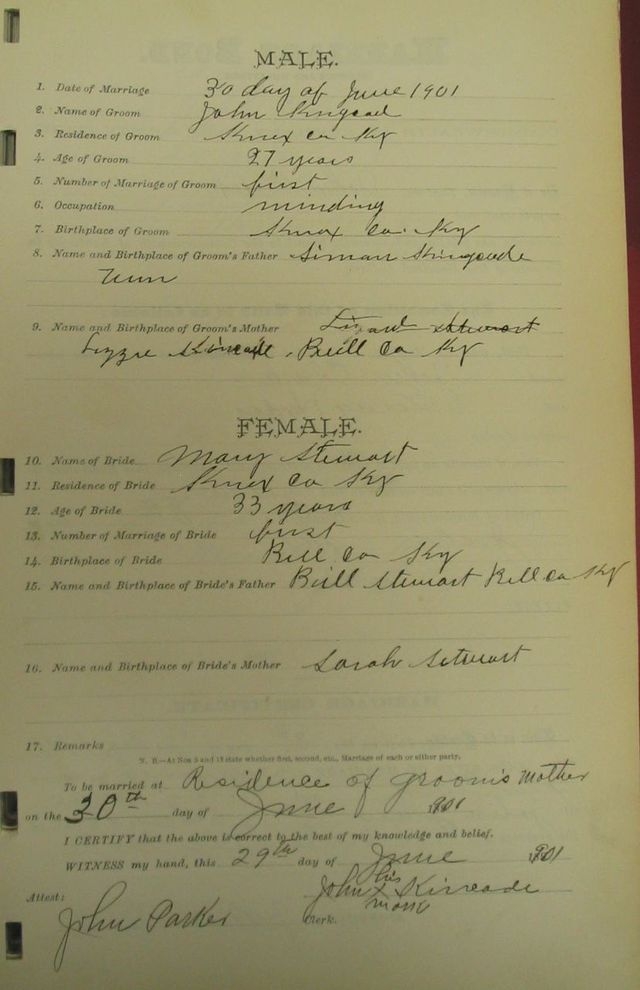 MALE.
1. Date of Marriage 30 day of June 1901
2. Name of Groom John Kingcad
3. Residence of Groom Knox co Ky
4. Age of Groom 27 years
5. Number of Marriage of Groom first
6. Occupation minding
7. Birthplace of Groom Knox Co. Ky
8. Name and Birthplace of Groom's Father Simon Kingcade
Tenn
9. Name and Birthplace of Groom's Mother Stewart
Lizzie Kincade. Bell Co Ky
FEMALE.
10. Name of Bride Mary Stewart
11. Residence of Bride Knox Co Ky
12. Age of Bride 33 years
13. Number of Marriage of Bride first
14. Birthplace of Bride Bell Co Ky
15. Name and Birthplace of Bride's Father Bill Stewart Bell co Ky
16. Name and Birthplace of Bride's Mother Sarah Stewart
17. Remarks
N. B.—At Nos 5 and 13 state whether first, second, etc., Marriage of each or either party.
To be married at Residence of groom's mother
on the 30th day of June 1901
I CERTIFY that the above is correct to the best of my knowledge and belief.
WITNESS my hand, this 29th day of June 1901
his
John x Kincade
mark
Attest:
John Parker Clerk.